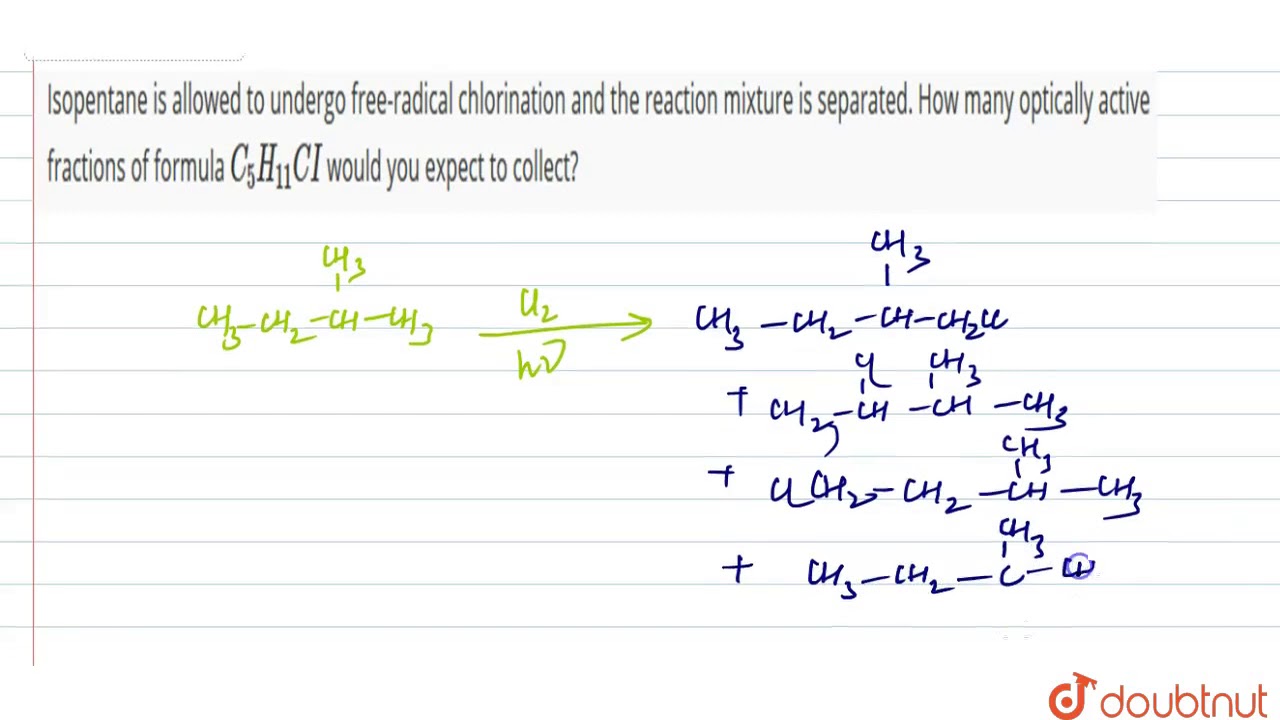 Isopentane is allowed to undergo free-radical chlorination and the reaction mixture is separated. How many optically active
fractions of formula C₅H₁₁CI would you expect to collect?
CH₃
CH₃
CH₃-CH₂-CH-CH₃
Cl₂
hν
CH₃-CH₂-CH-CH₂Cl
Cl CH₃
+ CH₃-CH-CH-CH₃
CH₃
+ ClCH₂-CH₂-CH-CH₃
CH₃
+ CH₃-CH₂-C-
doubtnut